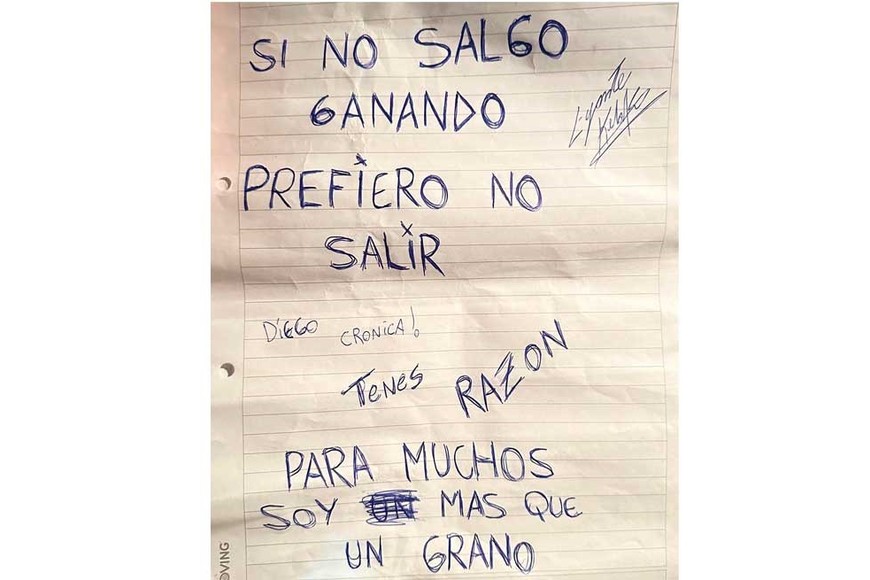 SI NO SALGO
GANANDO
PREFIERO NO
SALIR
DIEGO CRONICA!
TENES RAZON
PARA MUCHOS
SOY UN MAS QUE
UN GRANO
OVING